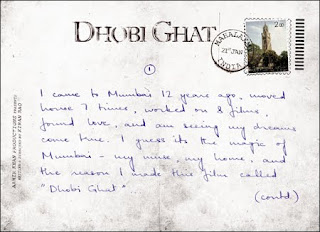 DHOBI GHAT
1
I came to Mumbai 12 years ago, moved
house 7 times, worked on 8 films,
found love, and am seeing my dreams
come true. I guess its the magic of
Mumbai - my muse, my home, and
the reason I made this film called
"Dhobi Ghat"
(contd.)
AAMIR KHAN PRODUCTIONS PRESENTS
WRITTEN & DIRECTED BY KIRAN RAO
2.00
INDIA